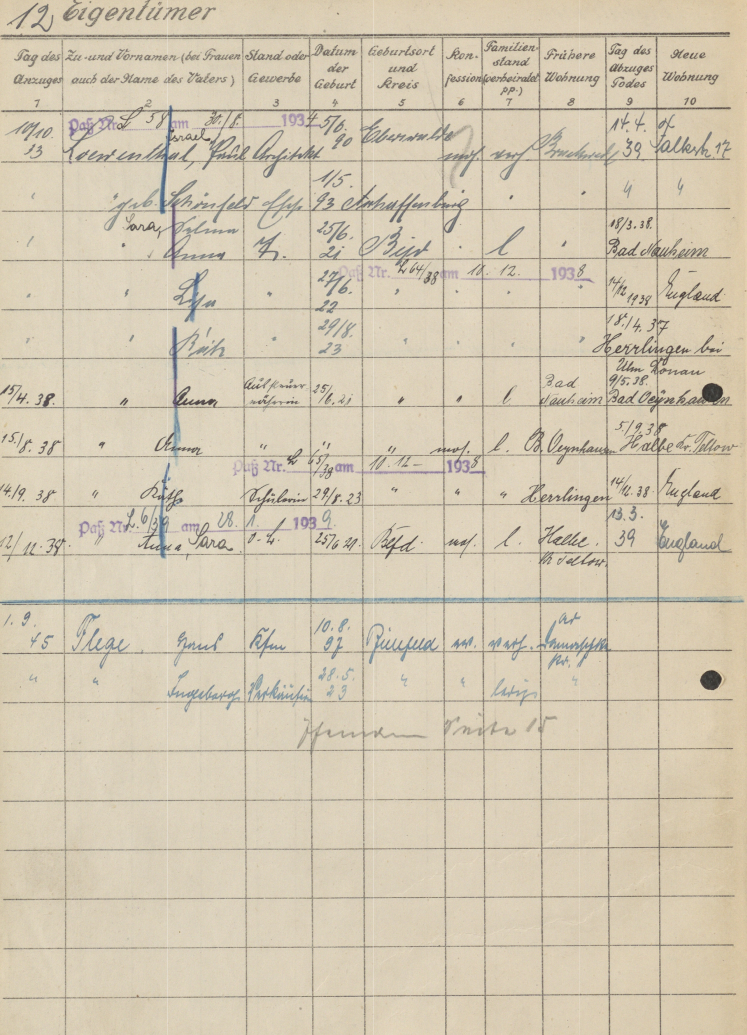 12 Eigentümer
Tag des Anzuges Zu- und Vornamen (bei Frauen auch der Name des Vaters) Stand oder Gewerbe Datum der Geburt Geburtsort und Kreis Konfession Familienstand (verheiratet pp.) Frühere Wohnung Tag des Abzuges Todes Neue Wohnung
1 2 3 4 5 6 7 8 9 10
Paß Nr. L 58 am 30./8. 1934
10/10. 33 Loewenthal, Israel, Paul Architekt 5/6. 90 Eberswalde mos. verh. 14.4. 39 Falkstr. 17
" " geb. Schönfeld Ehefr. 1/5. 93 Aschaffenburg " " " "
" " Sara, Selma Anna T. 25/6. 21 Bfd " l " 18/3. 38. Bad Nauheim
Paß Nr. L 64/38 am 10. 12. 1938
" " Lisa " 27/6. 22 " " " " 14/12 1938 England
" " Käth " 29/8. 23 " " " " 18./4. 37 Herrlingen bei Ulm Donau
15/4. 38. " Anna 25/6. 21 " " l Bad Nauheim 9/5. 38. Bad Oeynhausen
15./8. 38 " Anna " " " mos. l. B. Oeynhausen 5/9. 38 Halbe Kr. Teltow
Paß Nr. L 65/38 am 10. 12 – 1938
14./9. 38 " Käthe Schülerin 29/8. 23 " " " Herrlingen 14/12. 38. England
Paß Nr. L. 6/39 am 28. 1. 1939.
12/12. 38. " Anna, Sara. o. G. 25/6 21. Bfd. mos. l. Halbe. Kr. Teltow. 13. 3. 39 England
1. 9. 45 Flege. Hans Kfm 10. 8. 97 Bielefeld ev. verh.
" " Ingeborg Verkäuferin 28. 5. 23 " " ledig "
Seite 15